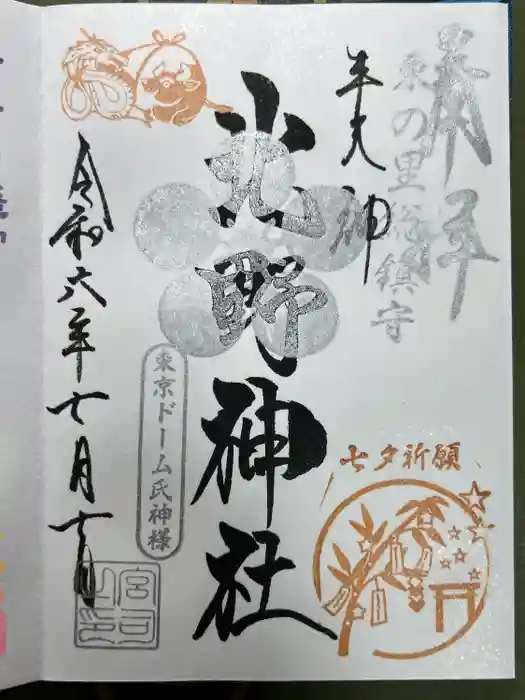 奉拝
の里総鎮守
牛天神
北野神社
七夕祈願
東京ドーム氏神様
令和六年七月七日
宮司之印